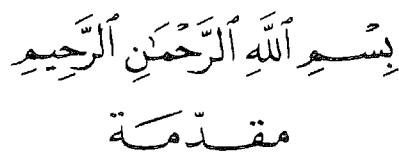 بِسْمِ ٱللَّهِ ٱلرَّحْمَٰنِ ٱلرَّحِيمِ
مقدّمَة